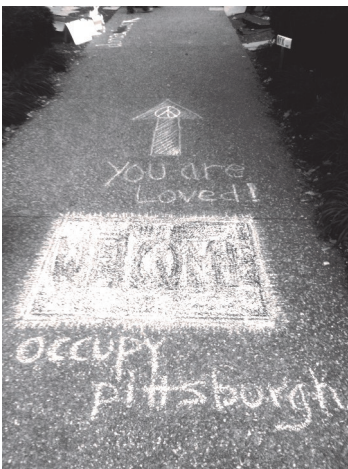 You are
Loved!
WELCOME
occupy
pittsburgh